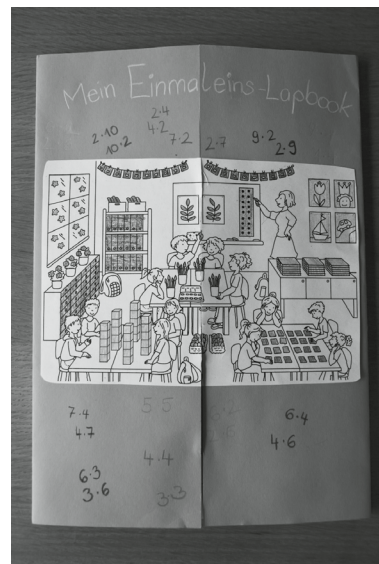 Mein Einmaleins-Lapbook
2·4
4·2
2·10
10·2
7·2
2·7
9·2
2·9
7·4
4·7
5·5
6·4
4·6
4·4
6·3
3·6
3·3